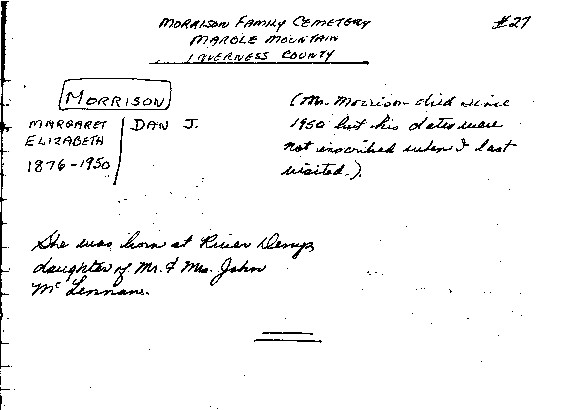 MORRISON FAMILY CEMETERY #27
MARBLE MOUNTAIN
INVERNESS COUNTY
MORRISON
MARGARET ELIZABETH 1876-1950
DAN J.
(Mr. Morrison died since
1950 but his dates were
not inscribed when I last
visited.)
She was born at River Denys
daughter of Mr. & Mrs. John
McLennan.